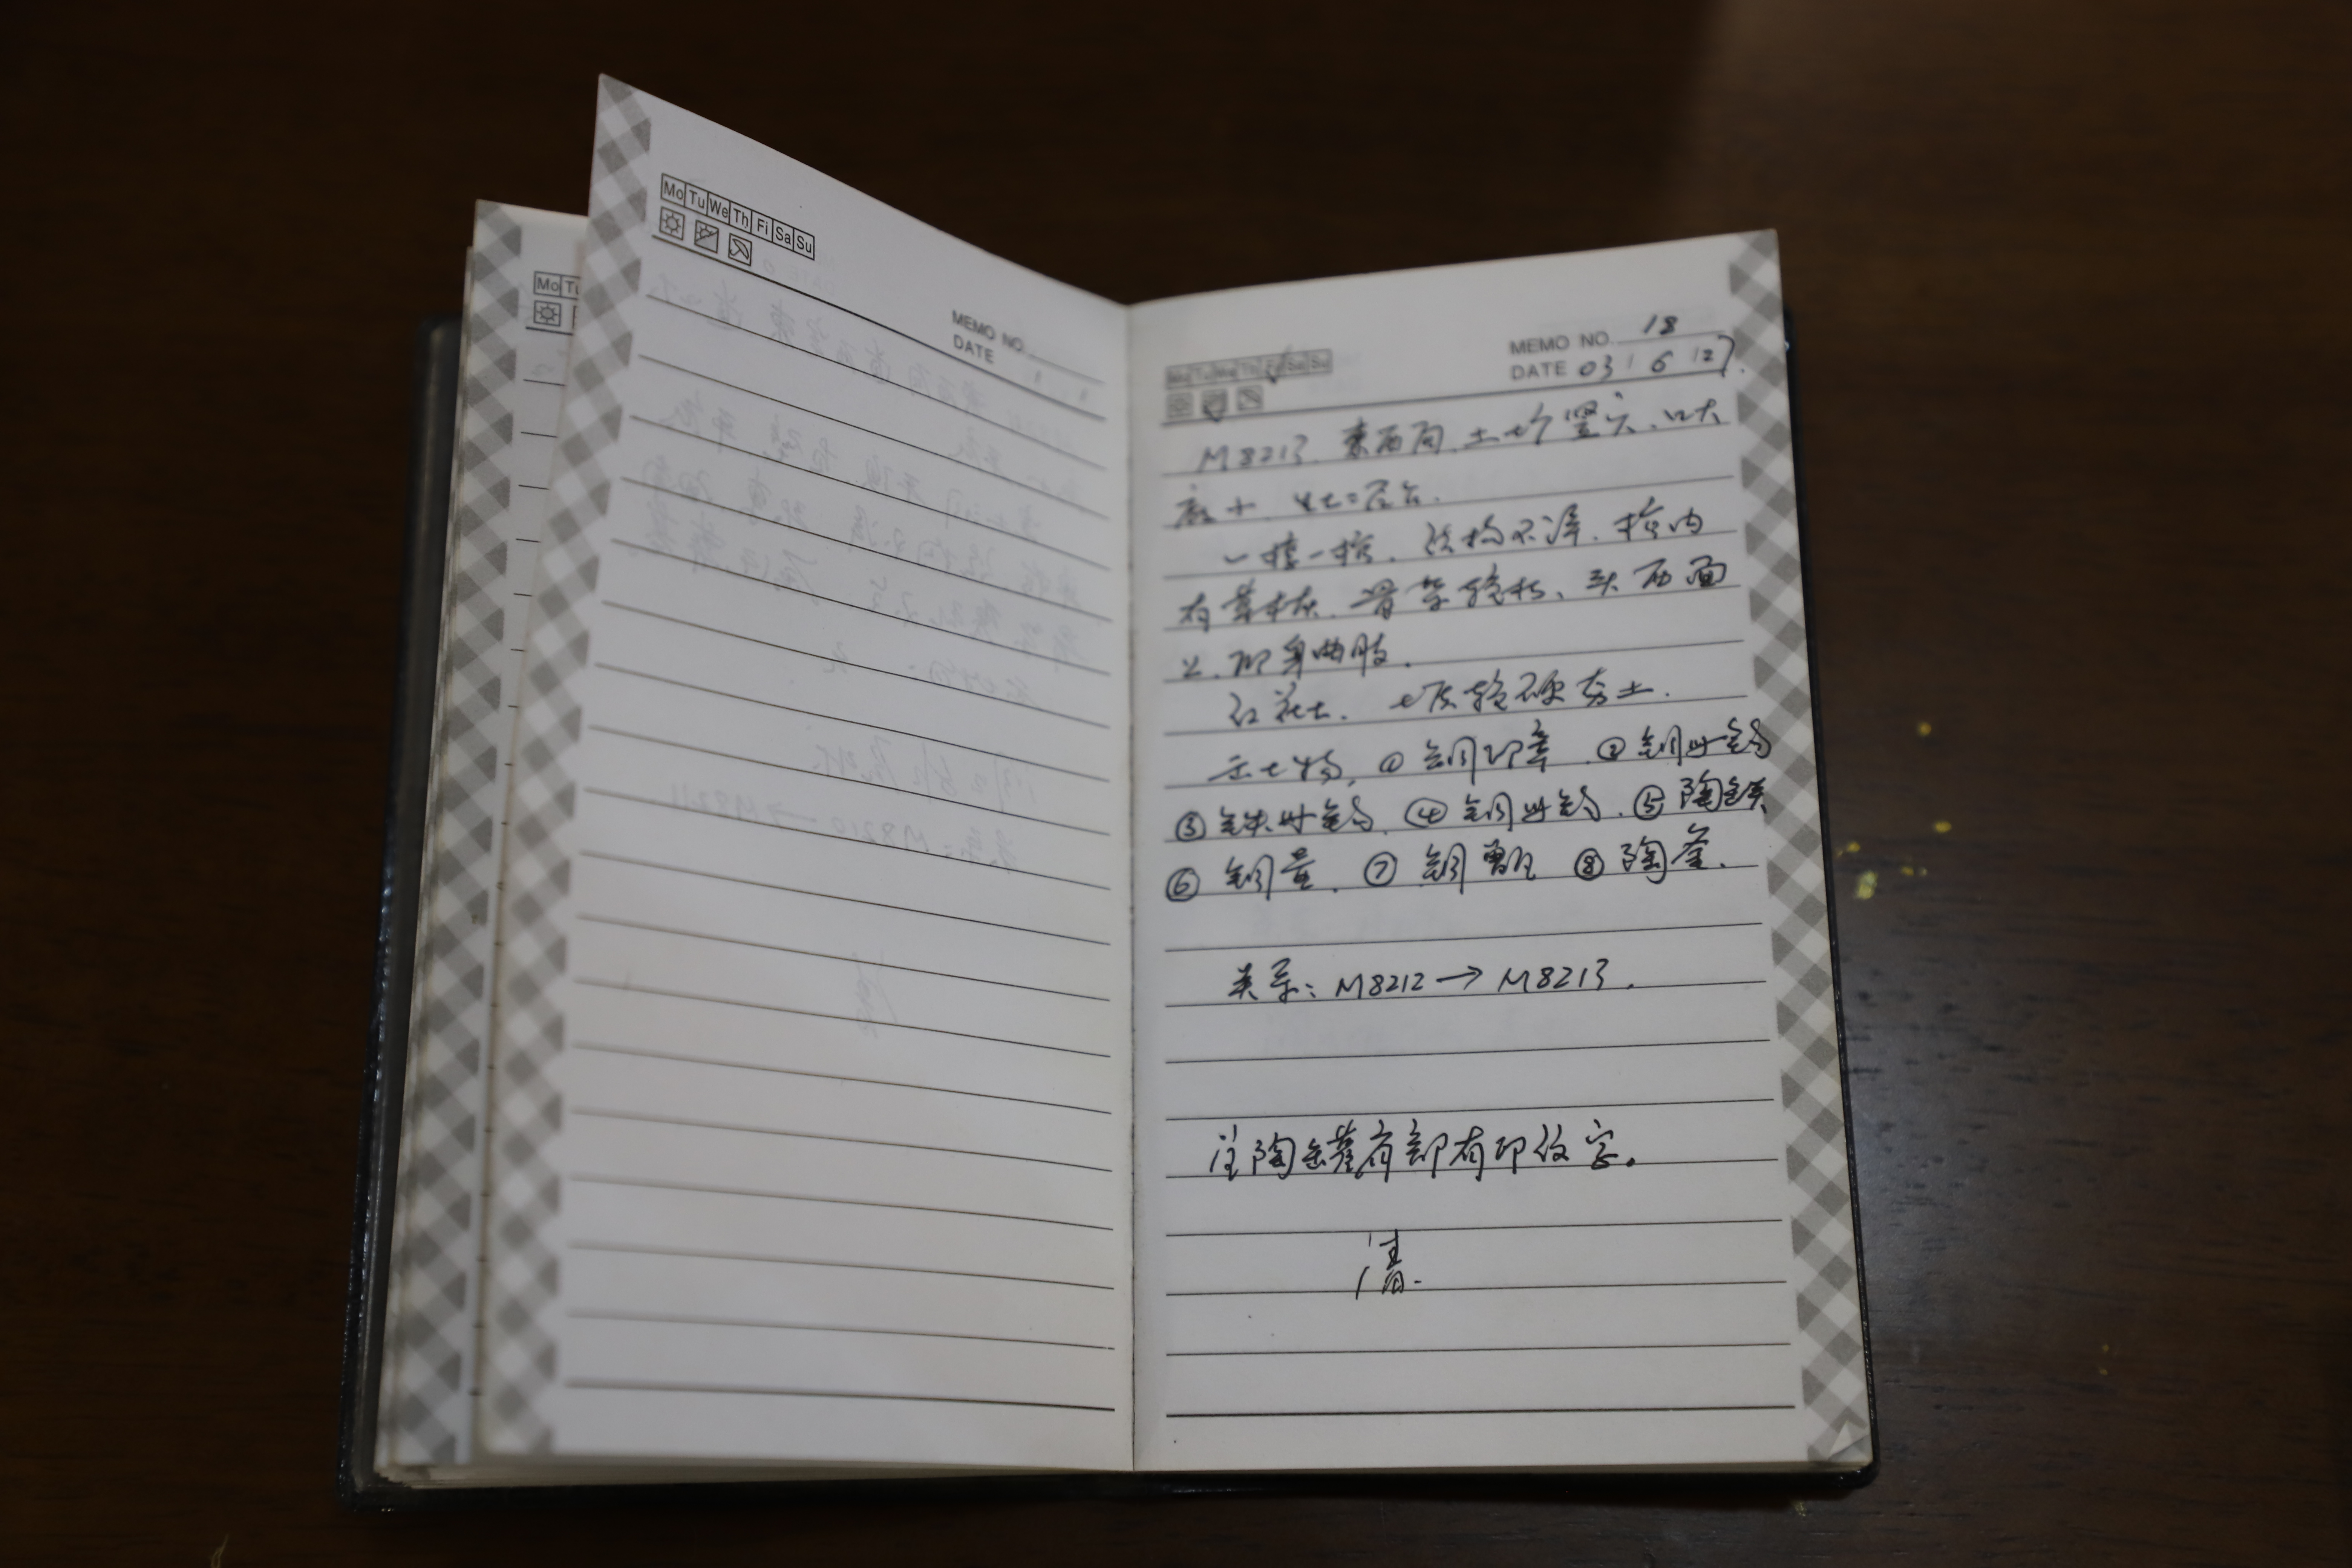 Mo Tu We Th Fi Sa Su
MEMO NO.
DATE
Mo Tu
Mo Tu We Th Fi Sa Su
MEMO NO. 18
DATE 03 / 6 / 27.
M8213. 东西向. 土圹竖穴. 口大
底小. 生土二层台.
一棺一椁. 结构不详. 棺内
有草木灰. 骨架较朽. 头西面
上. 仰身曲肢.
红花土. 土质较硬夯土.
出土物. ① 铜印章. ② 铜带钩
③ 铁带钩. ④ 铜带钩. ⑤ 陶
⑥ 铜量. ⑦ 铜甑 ⑧ 陶釜.
关系: M8212 → M8213.
注陶缶罐肩部有印纹字.
清.